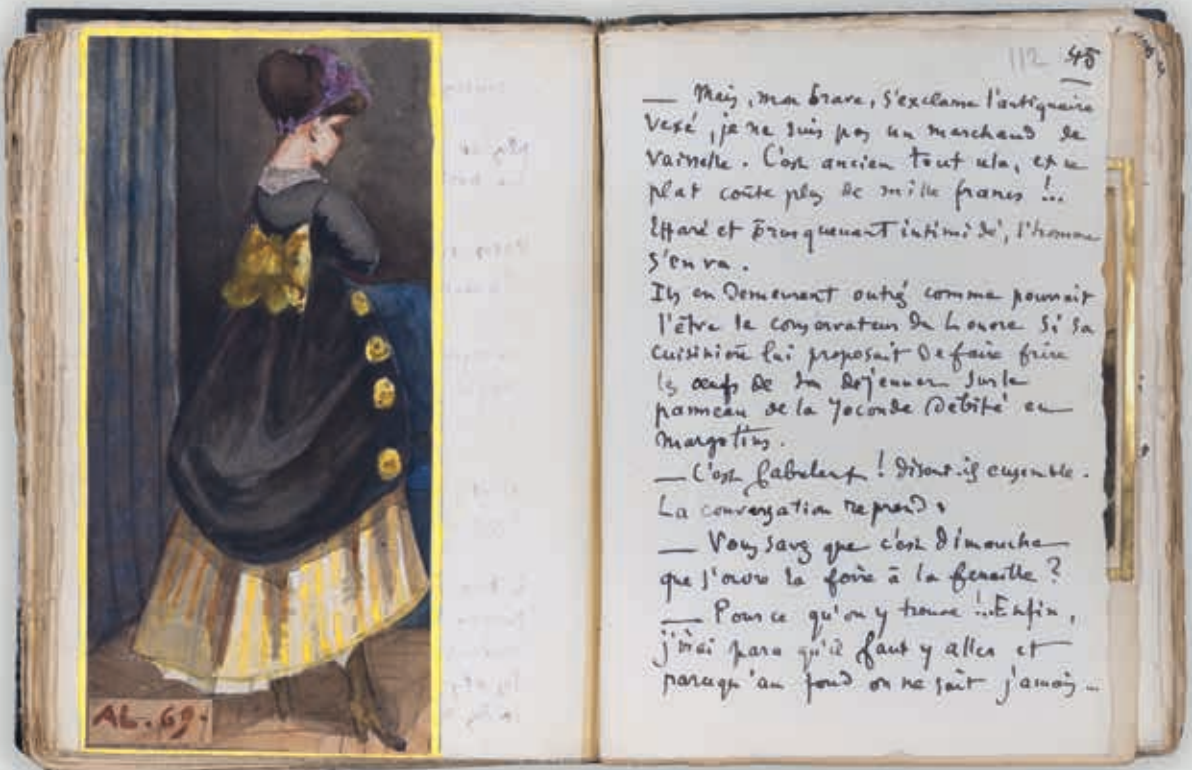 AL. 69.
112 45
— Mais, mon brave, s'exclame l'antiquaire
vexé, je ne suis pas un marchand de
vaisselle. C'est ancien tout cela, et ce
plat coûte plus de mille francs !..
Effaré et brusquement intimidé, l'homme
s'en va.
Ils en demeurent outrés comme pourrait
l'être le conservateur du Louvre si sa
cuisinière lui proposait de faire frire
les œufs de son déjeuner sur le
panneau de la Joconde débité en
margotins.
— C'est fabuleux ! disent-ils ensemble.
La conversation reprend :
— Vous savez que c'est dimanche
que s'ouvre la foire à la ferraille ?
— Pour ce qu'on y trouve !.. Enfin,
j'irai parce qu'il faut y aller et
parce qu'au fond on ne sait jamais...